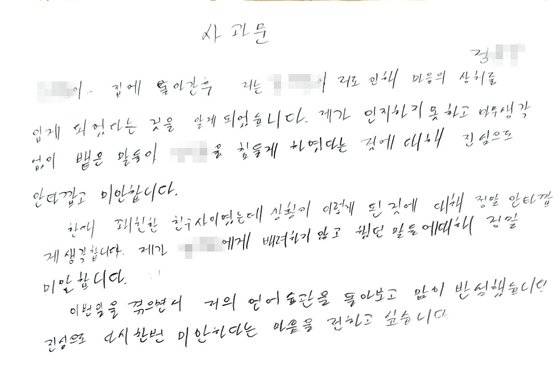 사과문
정
이. 집에 돌아간후 저는 이 저로 인해 마음의 상처를
입게 되었다는 것을 알게되었습니다. 제가 인지하지 못하고 아무생각
없이 뱉은 말들이 을 힘들게 하였다는 것에 대해 진심으로
안타깝고 미안합니다.
한때 친한 친구사이였는데 상황이 이렇게 된것에 대해 정말 안타깝
게생각합니다. 제가 에게 배려하지 않고 했던 말들에대해 정말
미안합니다.
이번일을 겪으면서 저의 언어습관을 돌아보고 많이 반성했습니다
진심으로 다시한번 미안하다는 마음을 전하고 싶습니다.